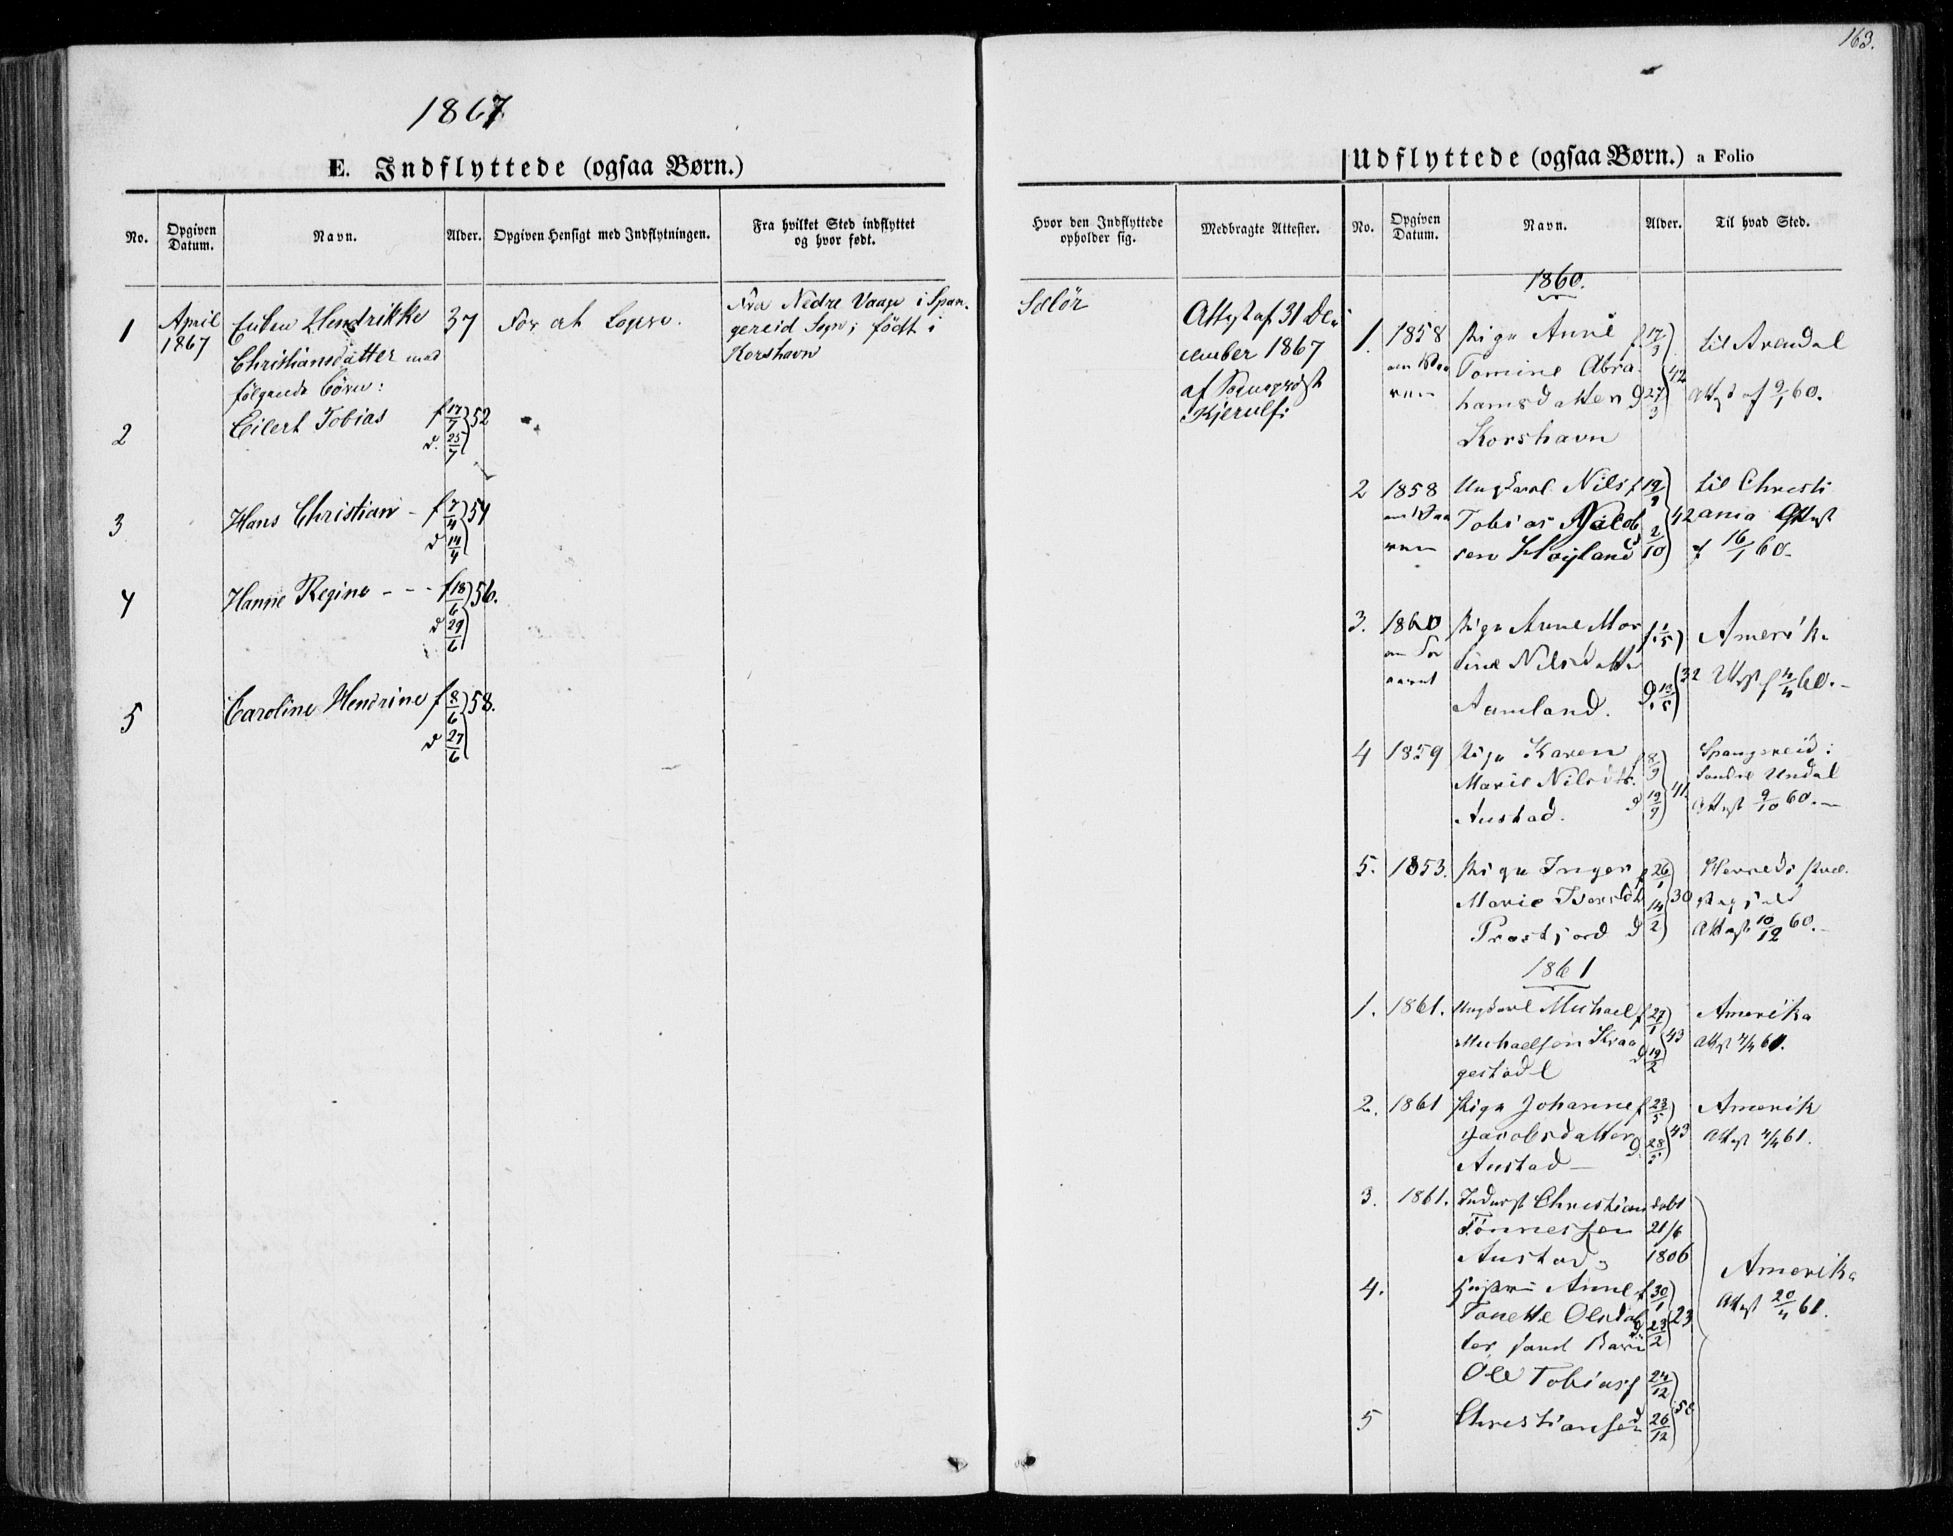 163.
1867
E. Indflyttede (ogsaa Børn.)
No.
Opgiven Datum.
Navn.
Alder.
Opgiven Hensigt med Indflytningen.
Fra hvilket Sted indflyttet og hvor født.
Hvor den Indflyttede opholder sig.
Medbragte Attester.
1
April
1867
Enken Hendrikke
Christiansdatter med
følgende Børn:
37
For at
Fra Nedre Vaage i Span-
gereid Sogn; født i
Korshavn
Selör
Attest af 31 De
cember 1867
af Sogneprest
Kjerulf.
2
Eilert Tobias f 17/7 52
d. 25/7
3
Hans Christian - f 7/4 54
d 14/4
4
Hanne Regine - - - f 18/6 56.
d 29/6
5
Caroline Hendrine f 8/6 58.
d 27/6
Udflyttede (ogsaa Børn.) a Folio
No.
Opgiven Datum.
Navn.
Alder.
Til hvad Sted.
1860.
1. 1858 Pige Anne f 17/3 til Arendal
om Vaa Tomine Abra- 42
ren hamsdatter d 27/3 Attest af 9/1 60.
Korshavn
2 1858 Ungkarl Nils f 19/9 til Christi
om Vaa Tobias 42 ania Attest
ren sen Høyland d 2/10 f 16/1 60.
3. 1860 Pige Anne Mar f 1/5 Amerika
om For tine Nilsdatter 32 Attest f 4/4 60.-
aaret Aamland. d 13/5
4 1859 Pige Karen f 8/9 Spangereid i
Marie Nilsdtr. 41. Søndre Undal
Austad. d 19/9 Attest 9/10 60.-
5. 1853. Pige Inger f 26/1 Herreds Præ-
Marie Iversdt 30 stegjeld
d 14/2 Attest 10/12 60.-
1861
1. 1861. Ungkarl Michael f 27/1 Amerika
Michaelsen Kraa 43 Attest 4/4 61.
gestad d 19/2
2. 1861 Pige Johanne f 23/5 Amerik
Jacobsdatter 43 Attest 4/4 61.
Austad - d. 28/5
3. 1861. Inderst Christian døbt
Tønnessen 21/6
Austad 1806
Amerika
Attest 20/4 61.
4. Hustru Anne f 30/1
Tonette Olsdat 23
ter samt Barn d 23/2
Ole Tobias f 24/12
5 Christiansen d 26/12